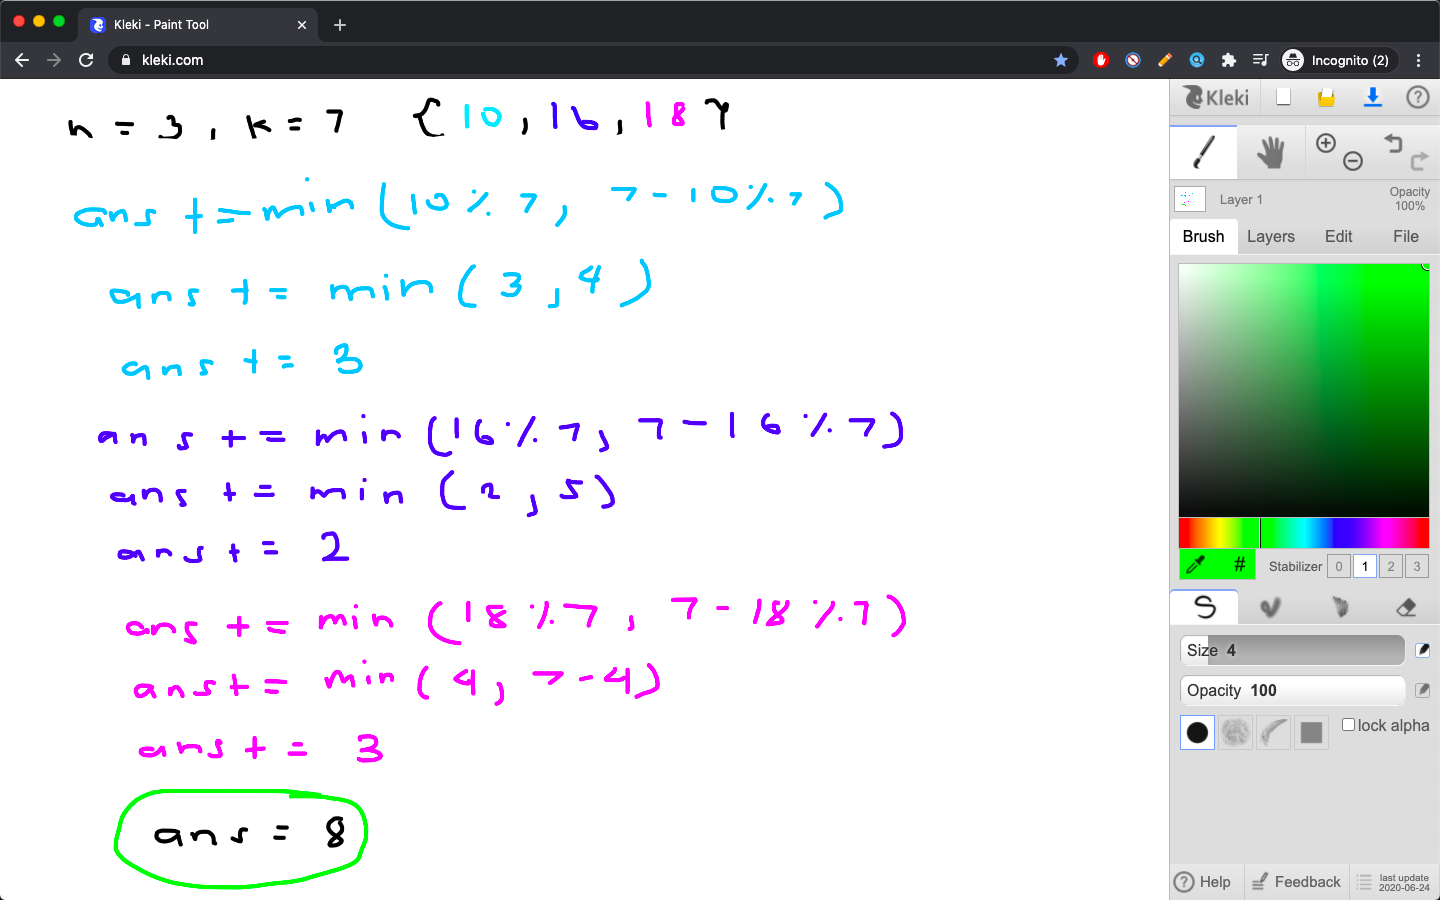 Kleki - Paint Tool
kleki.com
Incognito (2)
n = 3, k = 7 {10, 16, 18}
ans += min(10%7, 7-10%7)
ans += min(3,4)
ans += 3
ans += min(16%7, 7-16%7)
ans += min(2,5)
ans += 2
ans += min(18%7, 7-18%7)
ans += min(4, 7-4)
ans += 3
ans = 8
Kleki
Layer 1
Opacity
100%
Brush Layers Edit File
# Stabilizer 0 1 2 3
Size 4
Opacity 100
lock alpha
Help Feedback last update
2020-06-24